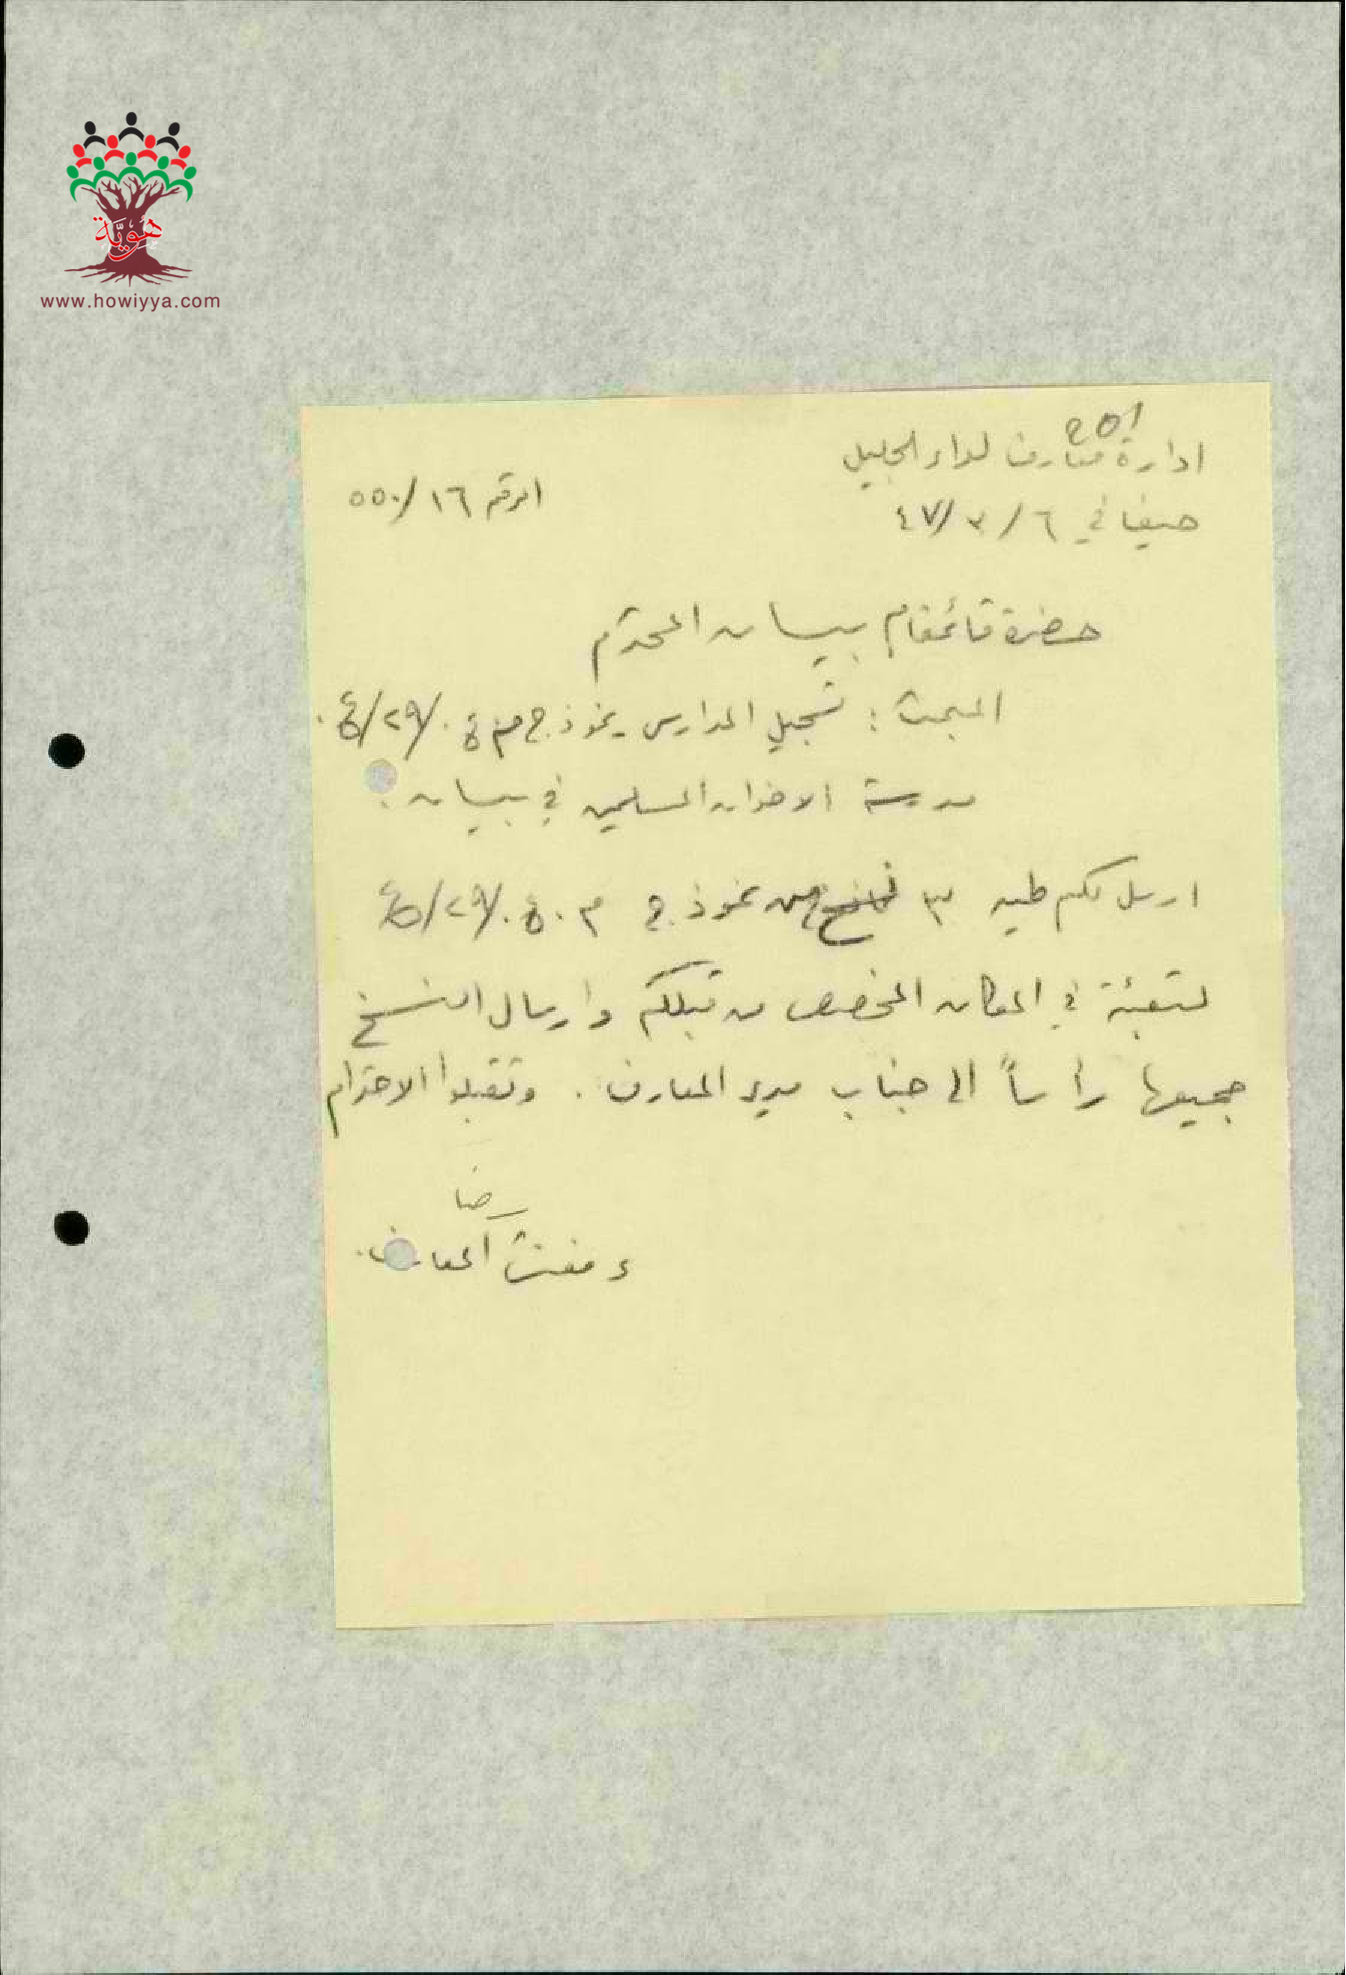 هوية
www.howiyya.com
201
ادارة معارف لواء الجليل
الرقم ١٦/٥٥٠
حيفا في ٦/٣/٤٧
حضرة قائمقام بيسان المحترم
المبحث : تسجيل المدارس نموذج م.٤٠/٢٩/
مدرسة الاخوان المسلمين في بيسان .
ارسل لكم طيه ٣ نسخ من نموذج م.٤٠/٢٩/
لتعبئة في المكان المخصص من قبلكم وارسال النسخ
جميعها رأساً الى جناب مدير المعارف . وتقبلوا الاحترام
رضا
مفتش المعارف